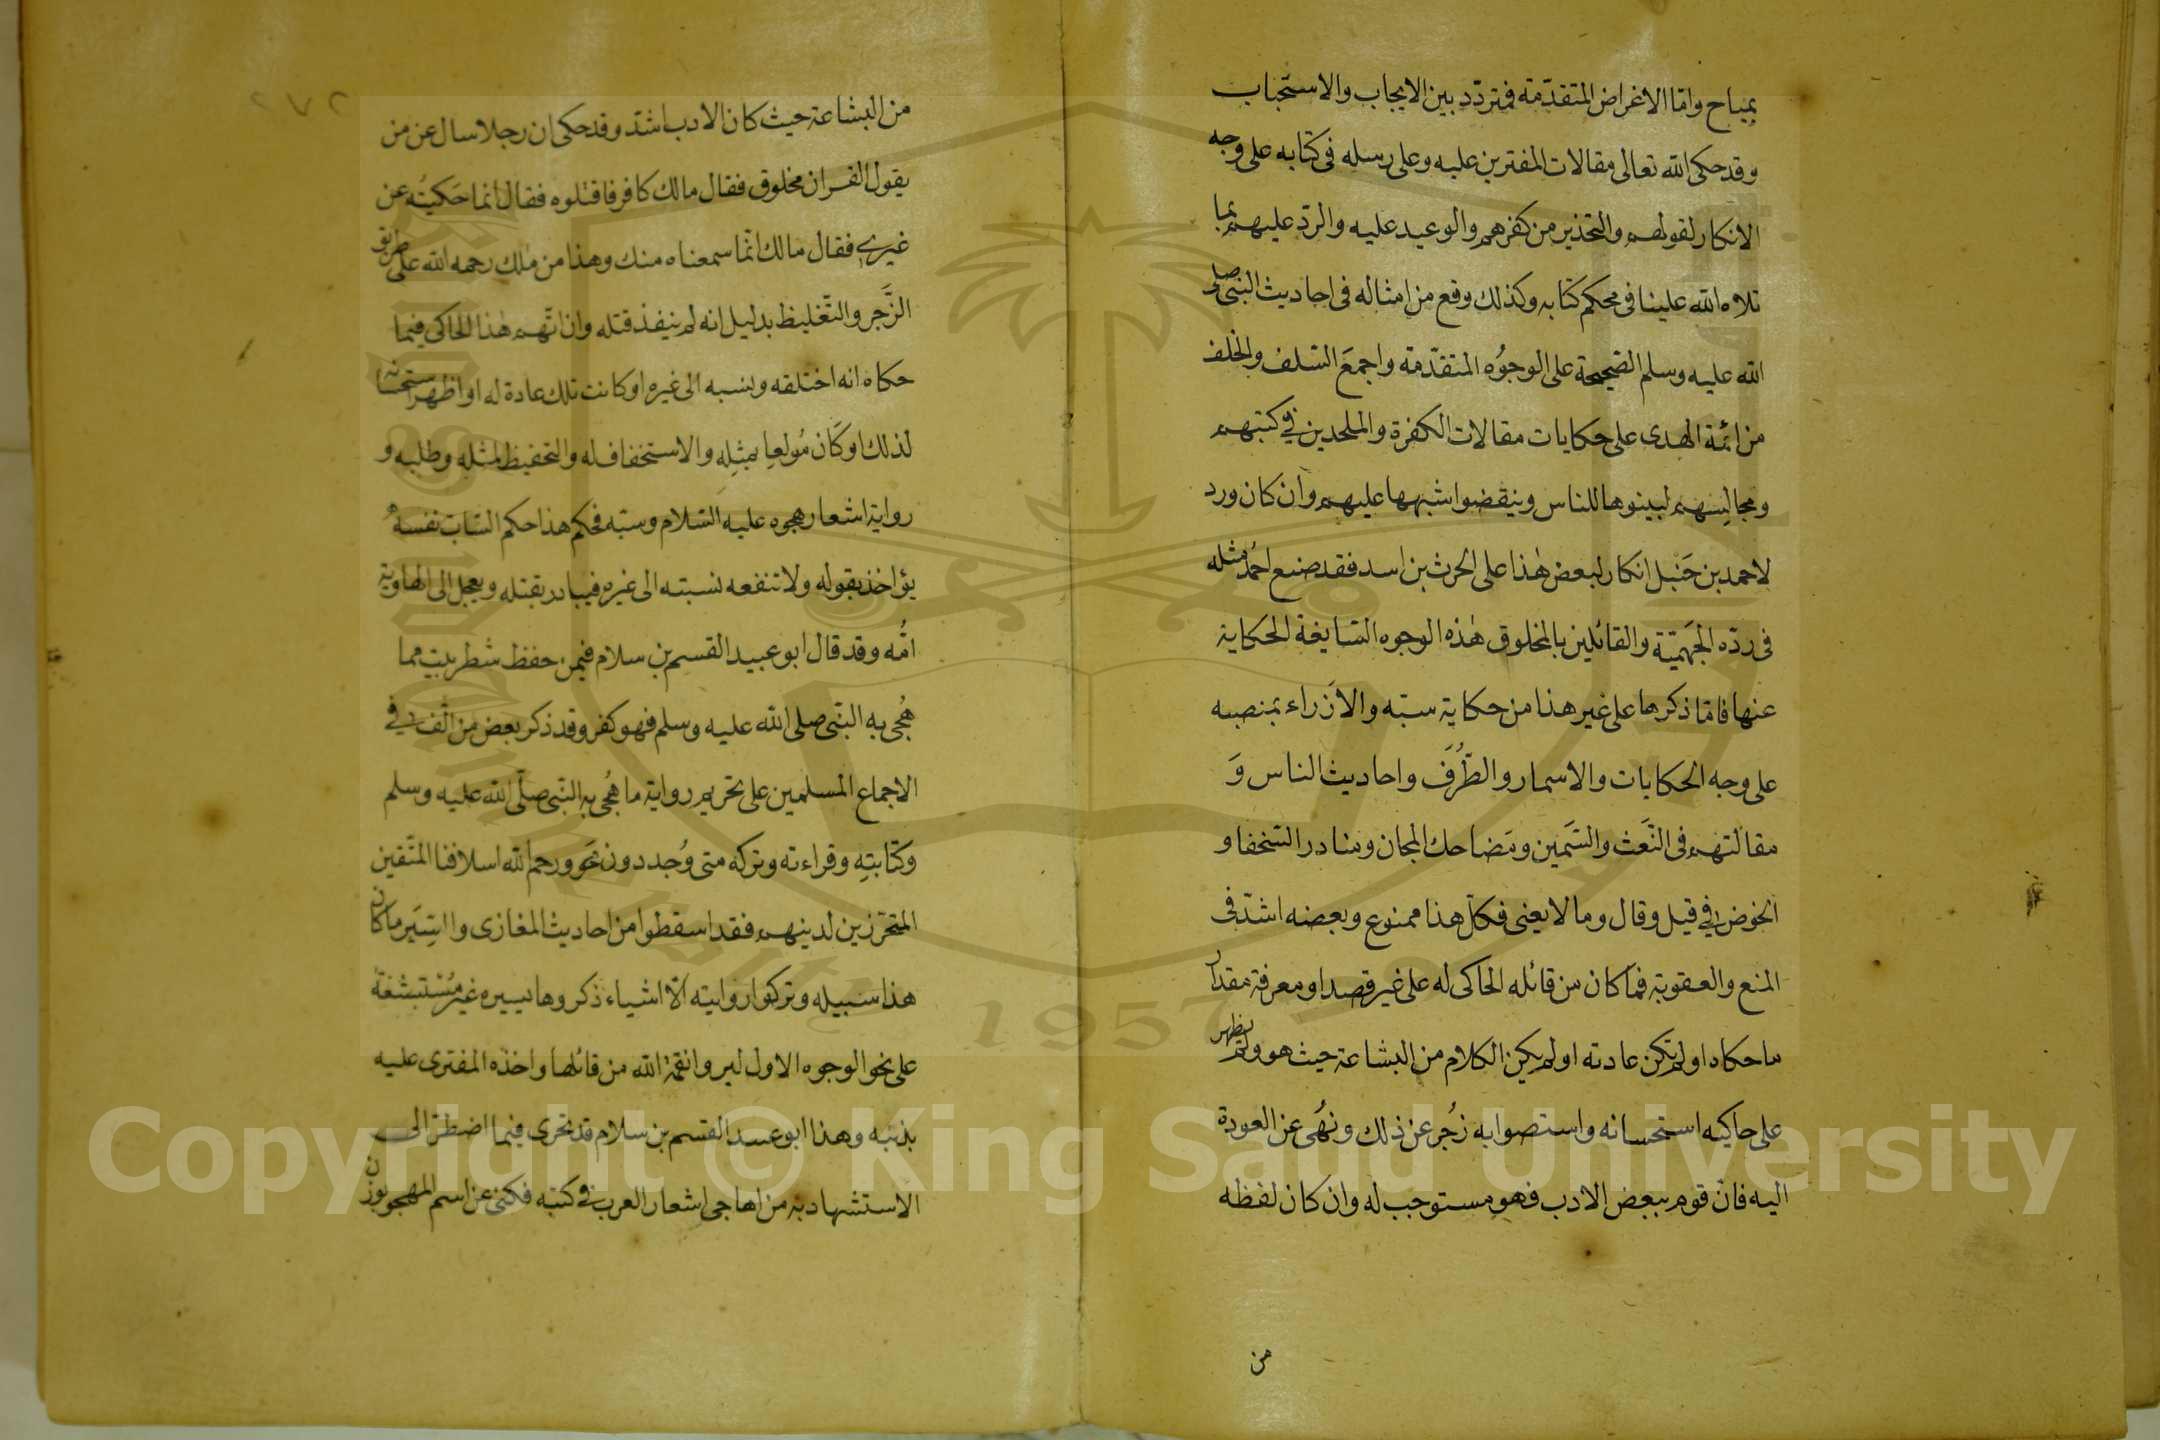 بمباح واما الاغراض المتقدّمة فمتردّد بين الايجاب والاستحباب
وقد حكى الله تعالى مقالات المفترين عليه وعلى رسله فى كتابه على وجه
الانكار لقولهم والتحذير من كفرهم والوعيد عليه والردّ عليهم بما
تلاه الله علينا فى محكم كتابه وكذلك وقع من امثاله فى احاديث النبى صلى
الله عليه وسلم الصّحيحة على الوجوُه المتقدّمة واجمعَ السّلف والخلف
من ائمة الهدى على حكايات مقالات الكفرة والملحدين فى كتبهم
ومجالِسِهم ليبينوها للناس وينقضوا شبهها عليهم وان كان ورد
لاحمد بن حَنبل انكار لبعض هٰذا على الحرث بن اسد فقد صنع احمُد مثله
فى ردّه الجَهَمّية والقائلين بالمخلوق هٰذه الوجوه السّايغة الحكاية
عنها فامّا ذكرها على غير هذا من حكاية سبّه والاَزراء بمنصبه
على وجه الحكايات والاسمار والطُّرَف واحاديث الناس وَ
مقالتهم فى النَّعَث والسَّمين ومَضاحك المجان ومنادر السّخفا و
الخوض فى قيل وقال وما لا يعنى فكلّ هذا ممنوع وبعضه اشدّ فى
المنع والعقوبة فما كان من قائله الحاكى له على غير قصد او معرفة مقدار
ما حكاه او لم تكن عادته او لم يكن الكلام من البشاعة حيث هو ولم يظهر
على حاكيه استحسانه واستصوابه زُجر عن ذلك ونهُى عن العودة
اليه فان قوم ببعض الادب فهو مستوجب له وان كان لفظه
من
٢٧٢
من البشاعة حيث كان الادب اشدّ وقد حكى ان رجلا سال عن من
يقول القران مخلوق فقال مالك كافر فاقتلوه فقال انّما حَكيتُه عن
غيرى فقال مالك انّما سمعناه منك وهٰذا من مٰلك رحمه الله على طريق
الزَّجر والتّغليظ بدليل انه لم ينفذ قتله وان اتّهم هٰذا الحاكى فيما
حكاه انه اختلقه ونسبه الى غيره او كانت تلك عادة له او اظهر استحسانه
لذلك او كَان مُولعا بمثِله والاستخفاف له والتحفيظ لمثله وطلبه و
رواية اشعار هجوه عليه السّلام وسبّه فحكم هذا حكم السّابّ نفسه
يؤاخذ بقوله ولا تنفعه نسبته الى غيره فيبادر بقتله ويعجل الى الهاوية
امُّه وقد قال ابو عبيد القسم بن سلام فيمن حفظ شطر بيت مما
هُجى به النّبى صلى الله عليه وسلم فهو كفر وقد ذكر بعض من الّف فى
الاجماع المسلمين على تحريم رواية ما هُجى به النّبى صلّى الله عليه وسلم
وكتابتِه وقراءته وتركه متى وُجد دون محو ورحم الله اسلافنا المتّقين
المتحرّزين لدينهم فقد اسقطوا من احاديث المغازى والسِّيَر ما كان
هذا سبيله وتركوا روايته الّا اشياء ذكروها يسيره غير مُسْتبشعة
على نحو الوجوه الاول ليروا نقمة الله من قائلها واخذه المفترى عليه
بذنبه وهٰذا ابو عبيد القسم بن سلام قد تحرى فيما اضطرّ الى
الاستشهاد به من اهاجى اشعار العرب فى كتبه فكنى عن اسم المهجو بوزن
Copyright © King Saud University
1957